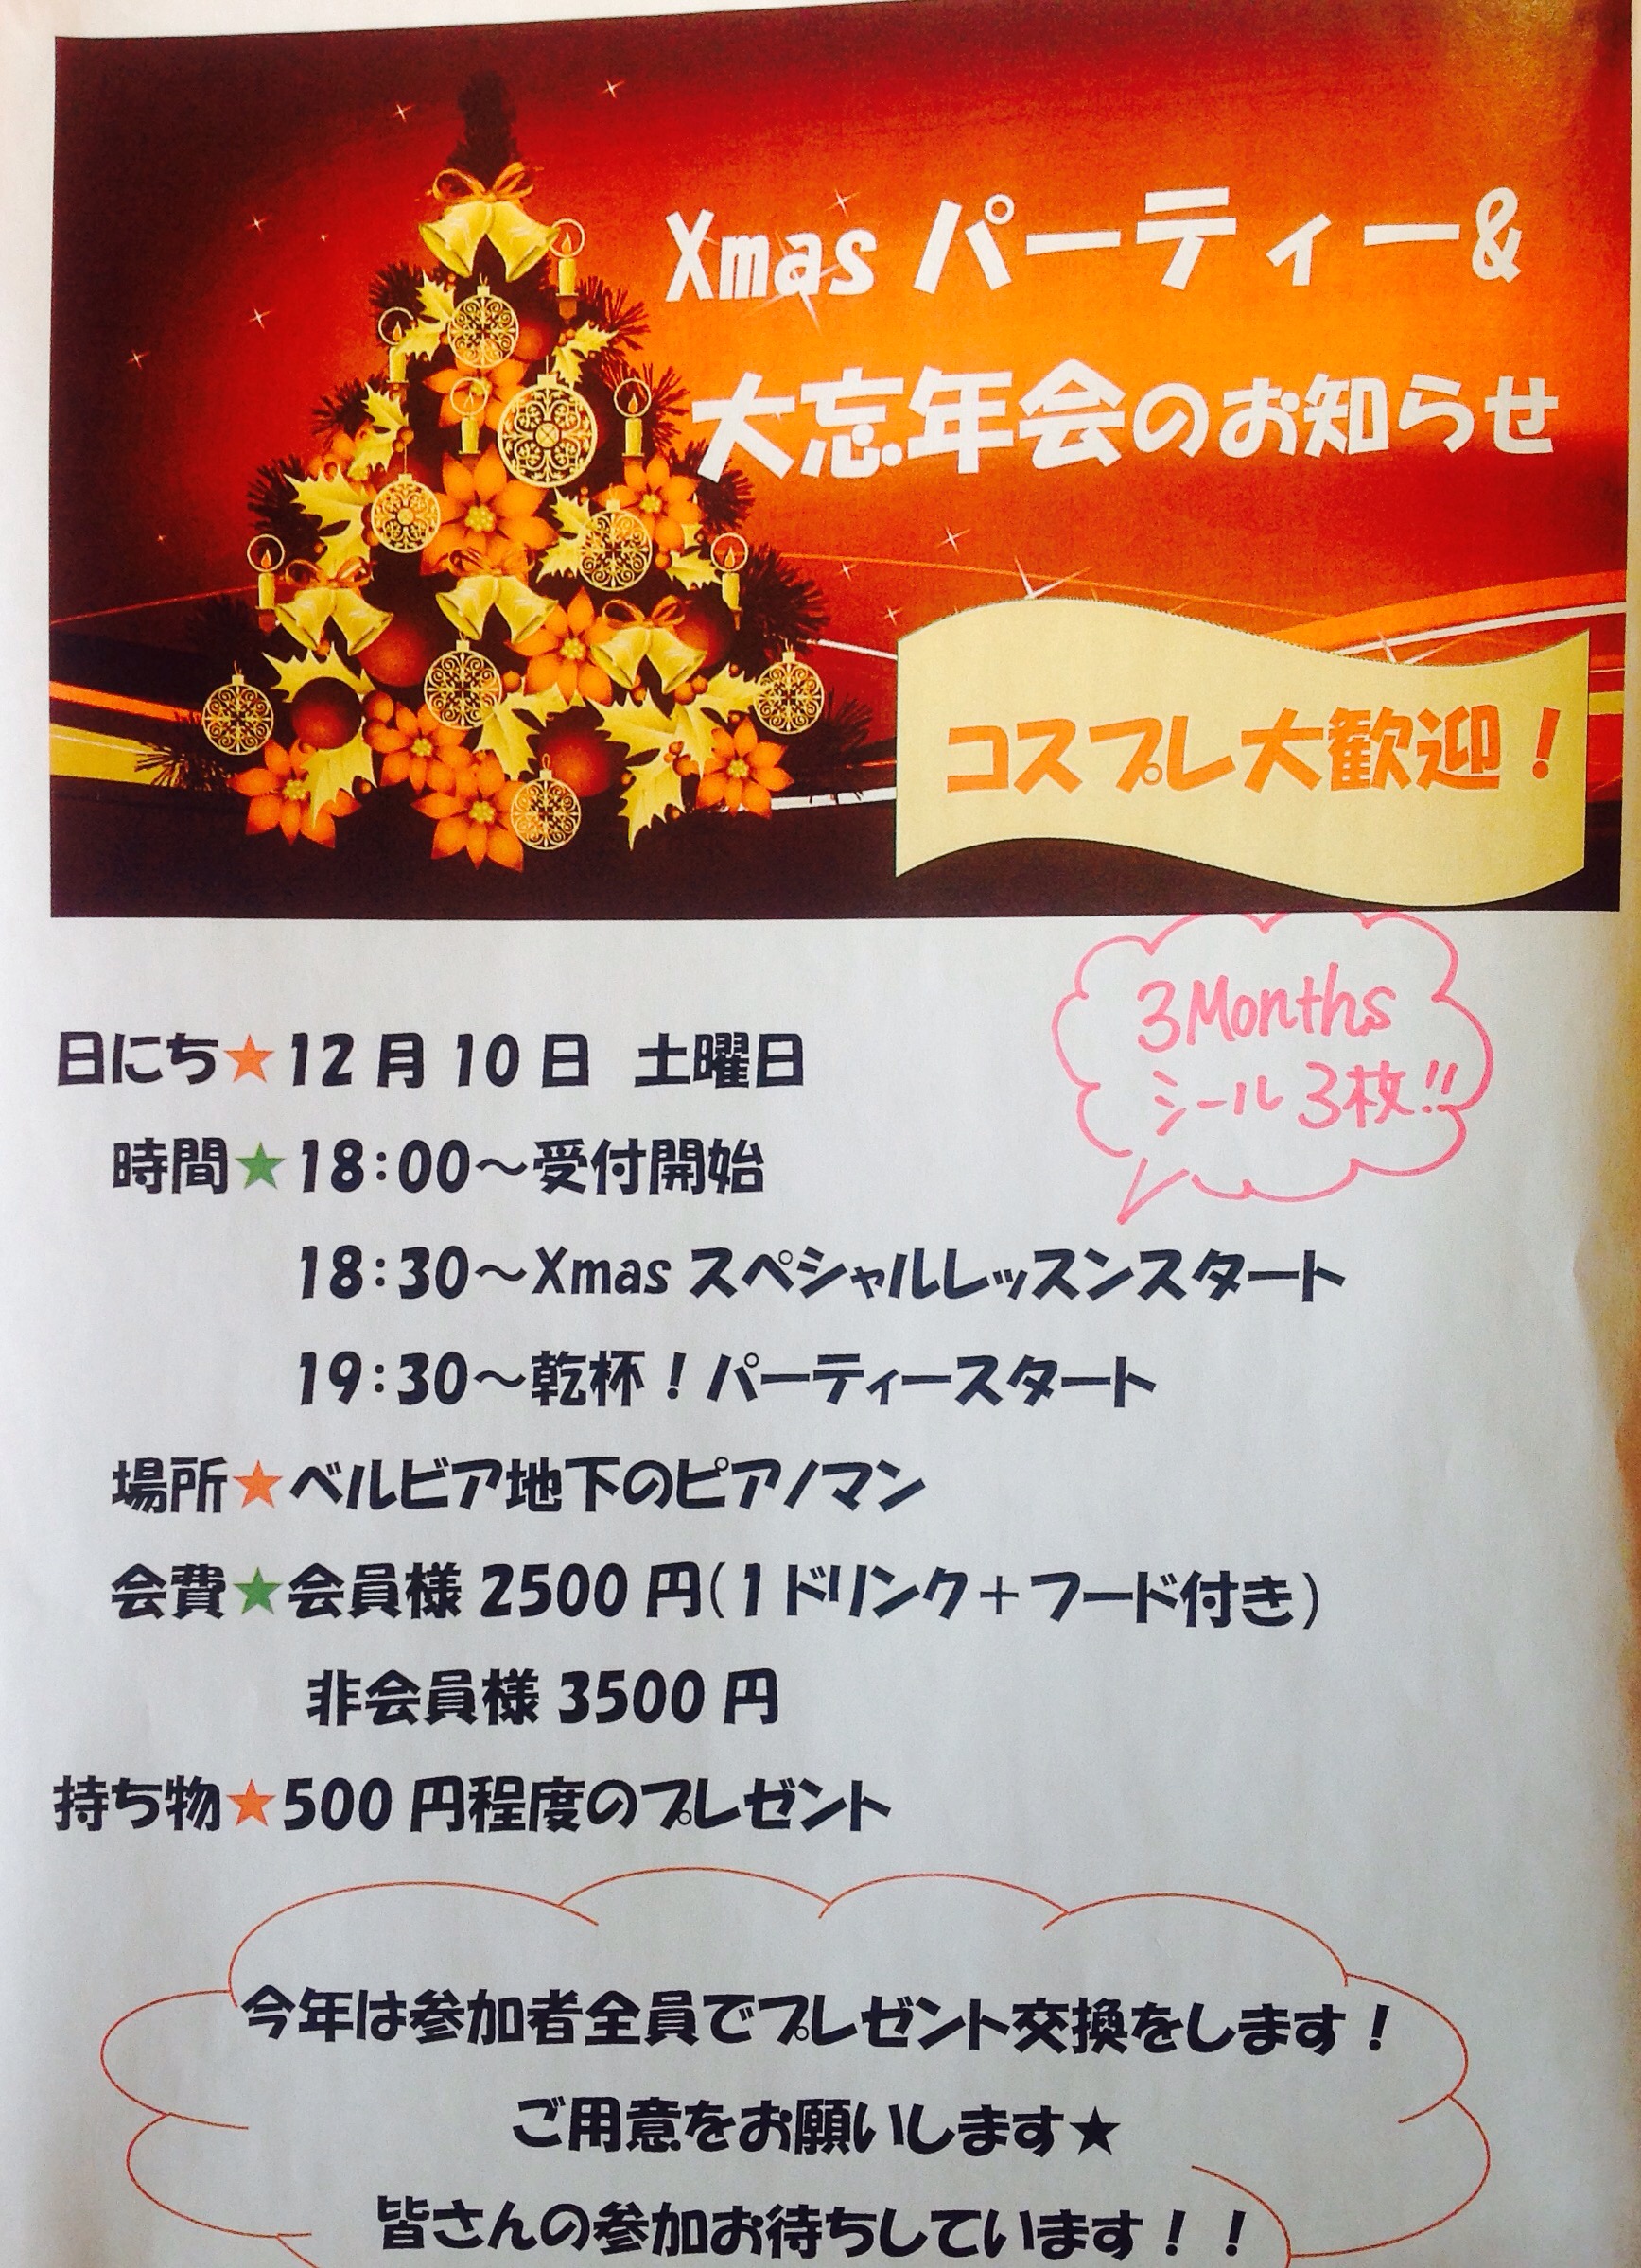 Xmas パーティー&
大忘年会のお知らせ
コスプレ大歓迎！
3Months
シール3枚!!
日にち★12月10日 土曜日
時間★18:00～受付開始
18:30～Xmas スペシャルレッスンスタート
19:30～乾杯！パーティースタート
場所★ベルビア地下のピアノマン
会費★会員様2500円(1ドリンク＋フード付き)
非会員様3500円
持ち物★500円程度のプレゼント
今年は参加者全員でプレゼント交換をします！
ご用意をお願いします★
皆さんの参加お待ちしています！！